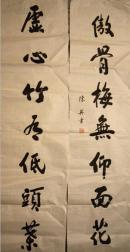 傲骨梅無仰面花
虛心竹有低頭葉